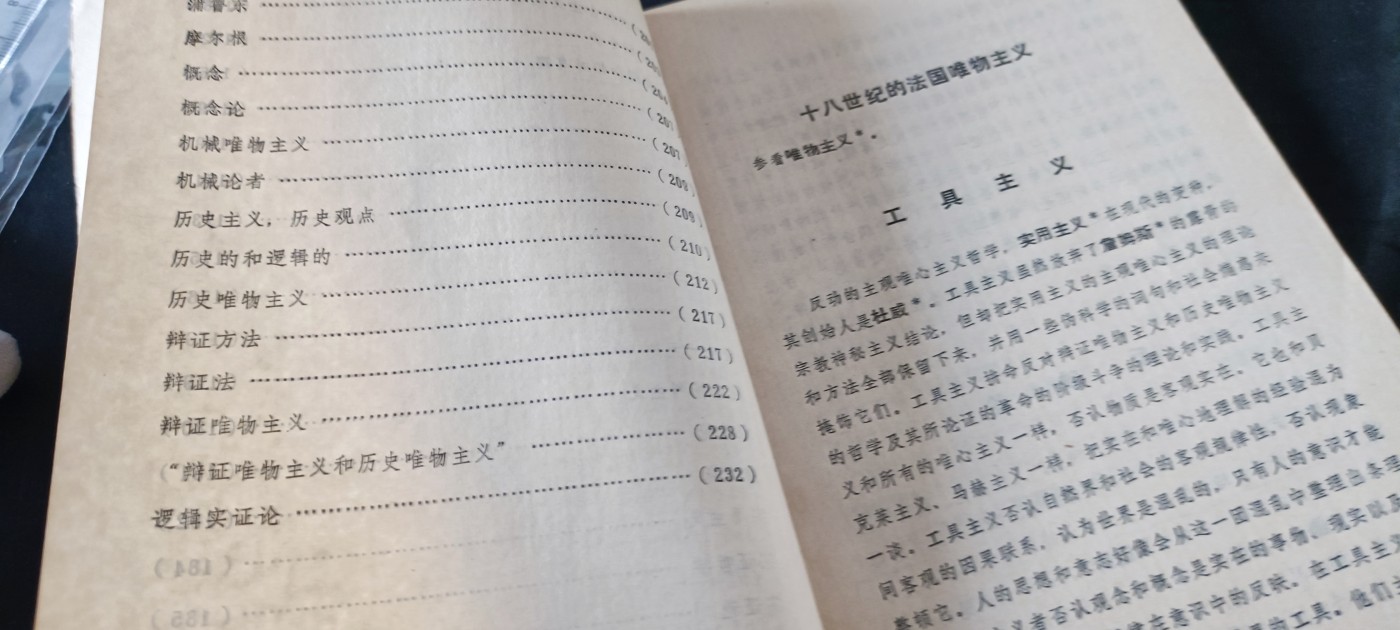 蒲鲁东
摩尔根
概念
概念论 (207)
机械唯物主义 (207)
机械论者 (209)
历史主义，历史观点 (209)
历史的和逻辑的 (210)
历史唯物主义 (212)
辩证方法 (217)
辩证法 (217)
辩证唯物主义 (222)
“辩证唯物主义和历史唯物主义” (228)
逻辑实证论 (232)
十八世纪的法国唯物主义
参看唯物主义*。
工具主义
反动的主观唯心主义哲学，实用主义*在现代的变种，
其创始人是杜威*。工具主义虽然放弃了詹姆斯*的露骨的
宗教神秘主义结论，但却把实用主义的主观唯心主义的理论
和方法全部保留下来，并用一些伪科学的词句和社会煽惑来
掩饰它们。工具主义拚命反对辩证唯物主义和历史唯物主义
的哲学及其所论证的革命的阶级斗争的理论和实践。工具主
义和所有的唯心主义一样，否认物质是客观实在，它也和贝
克莱主义、马赫主义一样，把实在和唯心地理解的经验混为
一谈。工具主义否认自然界和社会的客观规律性，否认现象
间客观的因果联系，认为世界是混乱的，只有人的意识才能
整顿它。人的思想和意志好像会从这一团混乱中整理出条理
义者否认观念和概念是实在的事物、现实以及
在意识中的反映。在工具主义
的工具。他们